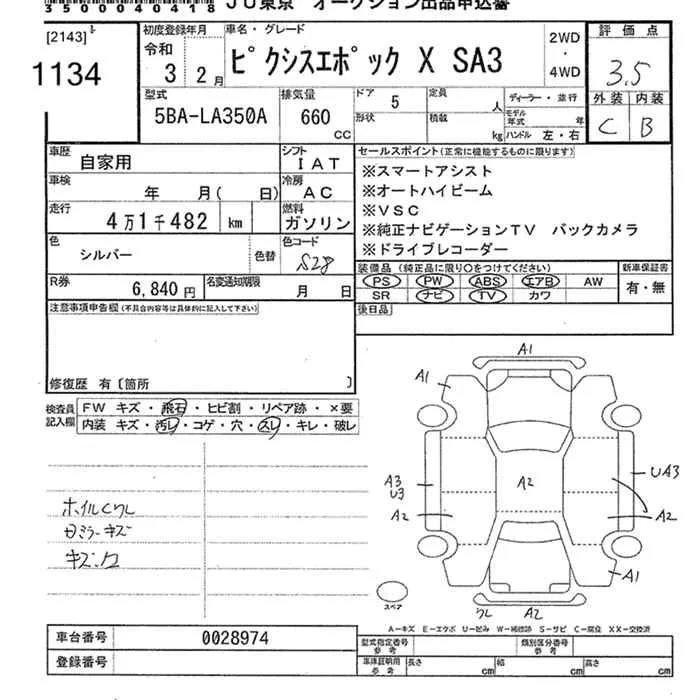 35000040418 JU東京 オークション出品申込書
[2143]
1134
初度登録年月
令和
3年 2月
車名・グレード
ピクシスエポック X SA3
2WD
・
4WD
評価点
3.5
外装 内装
C B
型式
5BA-LA350A
排気量
660
cc
ドア 5
形状
定員 人
積載 kg
ディーラー・並行
モデル年式 年
ハンドル 左・右
車歴
自家用
シフト
IAT
車検
年 月( 日)
冷房
AC
走行
4万1千482 km
燃料
ガソリン
色
シルバー
色替
色コード
S28
R券
6,840円
名変通知期限
月 日
セールスポイント(正常に機能するものに限ります)
※スマートアシスト
※オートハイビーム
※VSC
※純正ナビゲーションTV バックカメラ
※ドライブレコーダー
装備品(純正品に限り○をつけてください) 新車保証書
PS PW ABS エアB AW
有・無
SR ナビ TV カワ
後日品
注意事項申告欄(不具合内容等は具体的に記入して下さい)
修復歴 有〔箇所 〕
検査員
記入欄
FW キズ・飛石・ヒビ割・リペア跡・×要
内装 キズ・汚レ・コゲ・穴・スレ・キレ・破レ
キズ
A1
A1
A3
U3
A2
A2
UA3
A2
A1
A2
スペア
A-キズ E-エクボ U-凹み W-補修跡 S-サビ C-腐食 XX-交換済
車台番号 0028974
登録番号
型式指定番号
参考
類別区分番号
参考
車庫証明用
参考
長さ cm
幅 cm
高さ cm